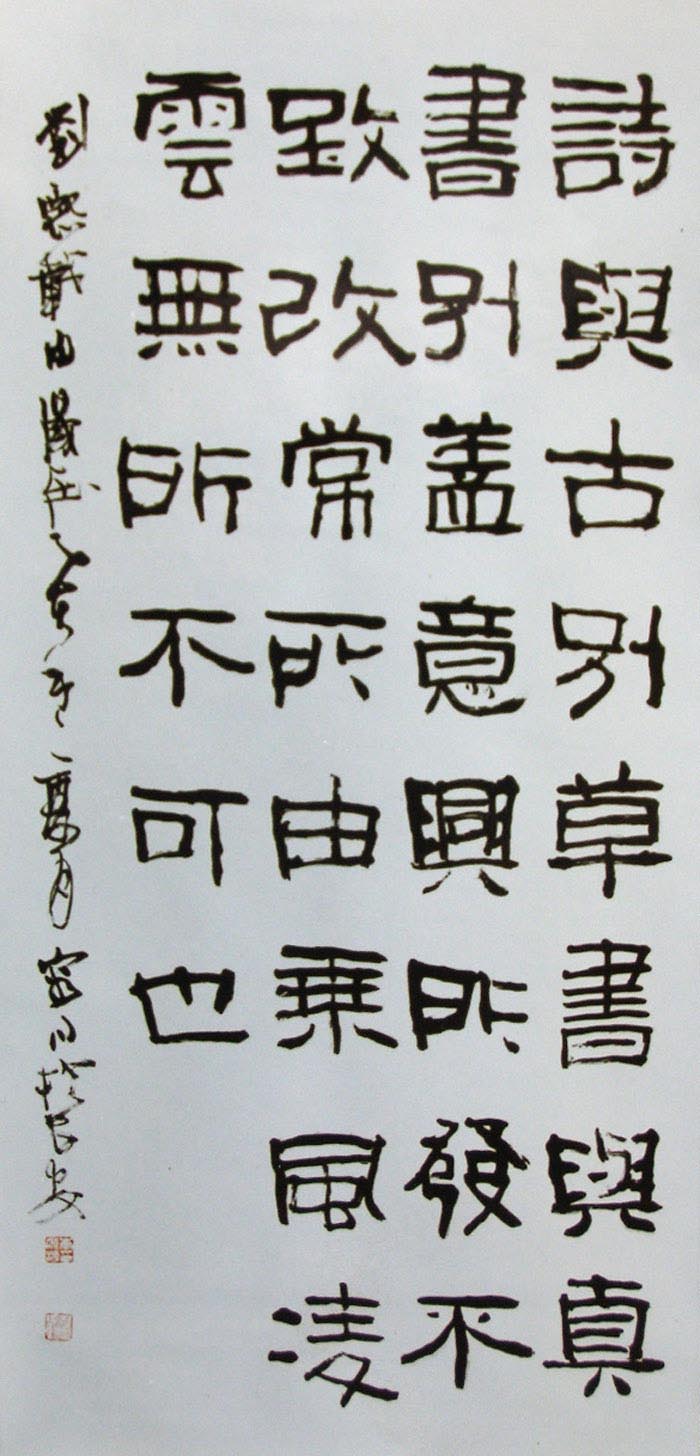 詩與古別草書與真
書別盖意興所發不
致改常所由乘風凌
雲無所不可也
劉熙載 月 長安